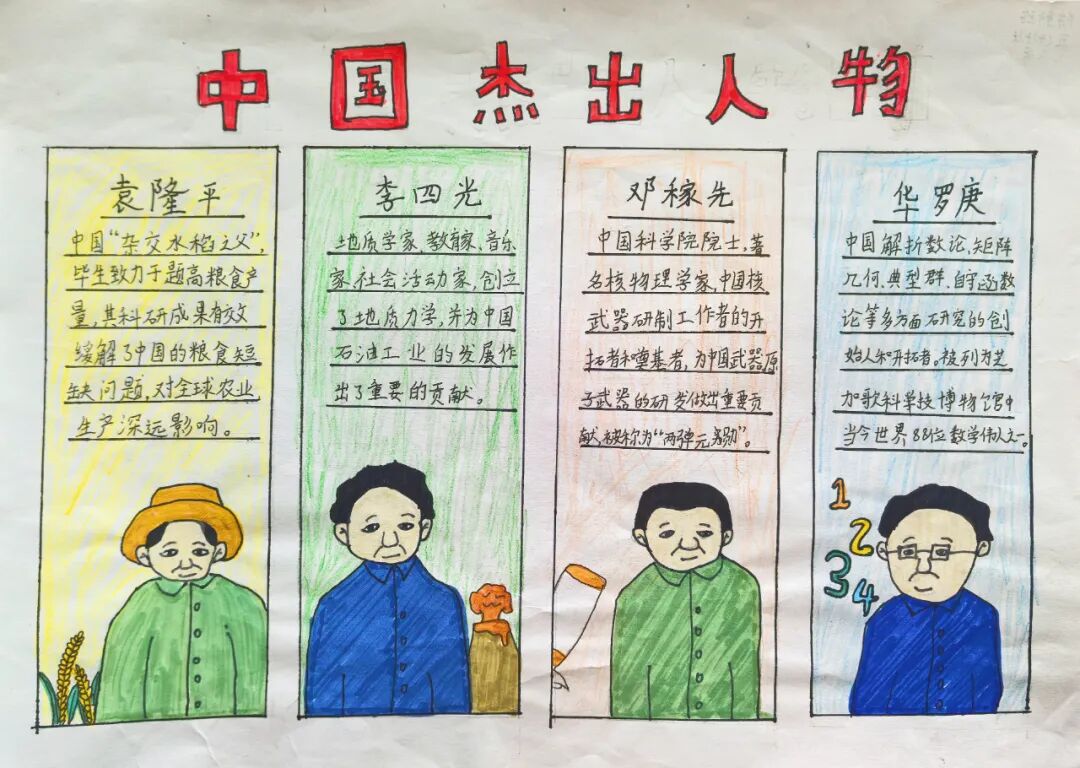 中国杰出人物
袁隆平
中国“杂交水稻之父”，
毕生致力于题高粮食产
量，其科研成果有效
缓解了中国的粮食短
缺问题，对全球农业
生产深远影响。
李四光
地质学家、教育家、音乐
家、社会活动家，创立
了地质力学，并为中国
石油工业的发展作
出了重要的贡献。
邓稼先
中国科学院院士，著
名核物理学家，中国核
武器研制工作者的开
拓者和奠基者，为中国武器原
子武器的研发做出重要贡
献，被称为“两弹元勋”。
华罗庚
中国解析数论、矩阵
几何、典型群、自守函数
论等多方面研究的创
始人和开拓者。被列为芝
加歌科学技博物馆中
当今世界88位数学伟人之一。
1
2
3
4